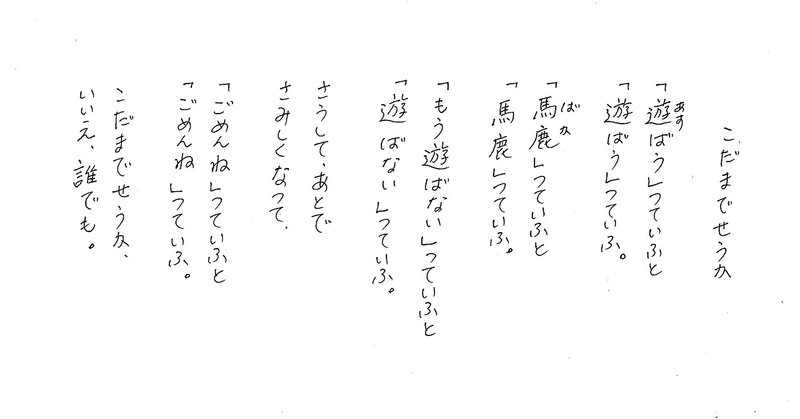 こだまでせうか
「遊ばう」っていふと
「遊ばう」っていふ。
「馬鹿」っていふと
「馬鹿」っていふ。
「もう遊ばない」っていふと
「遊ばない」っていふ。
さうして、あとで
さみしくなって、
「ごめんね」っていふと
「ごめんね」っていふ。
こだまでせうか、
いいえ、誰でも。